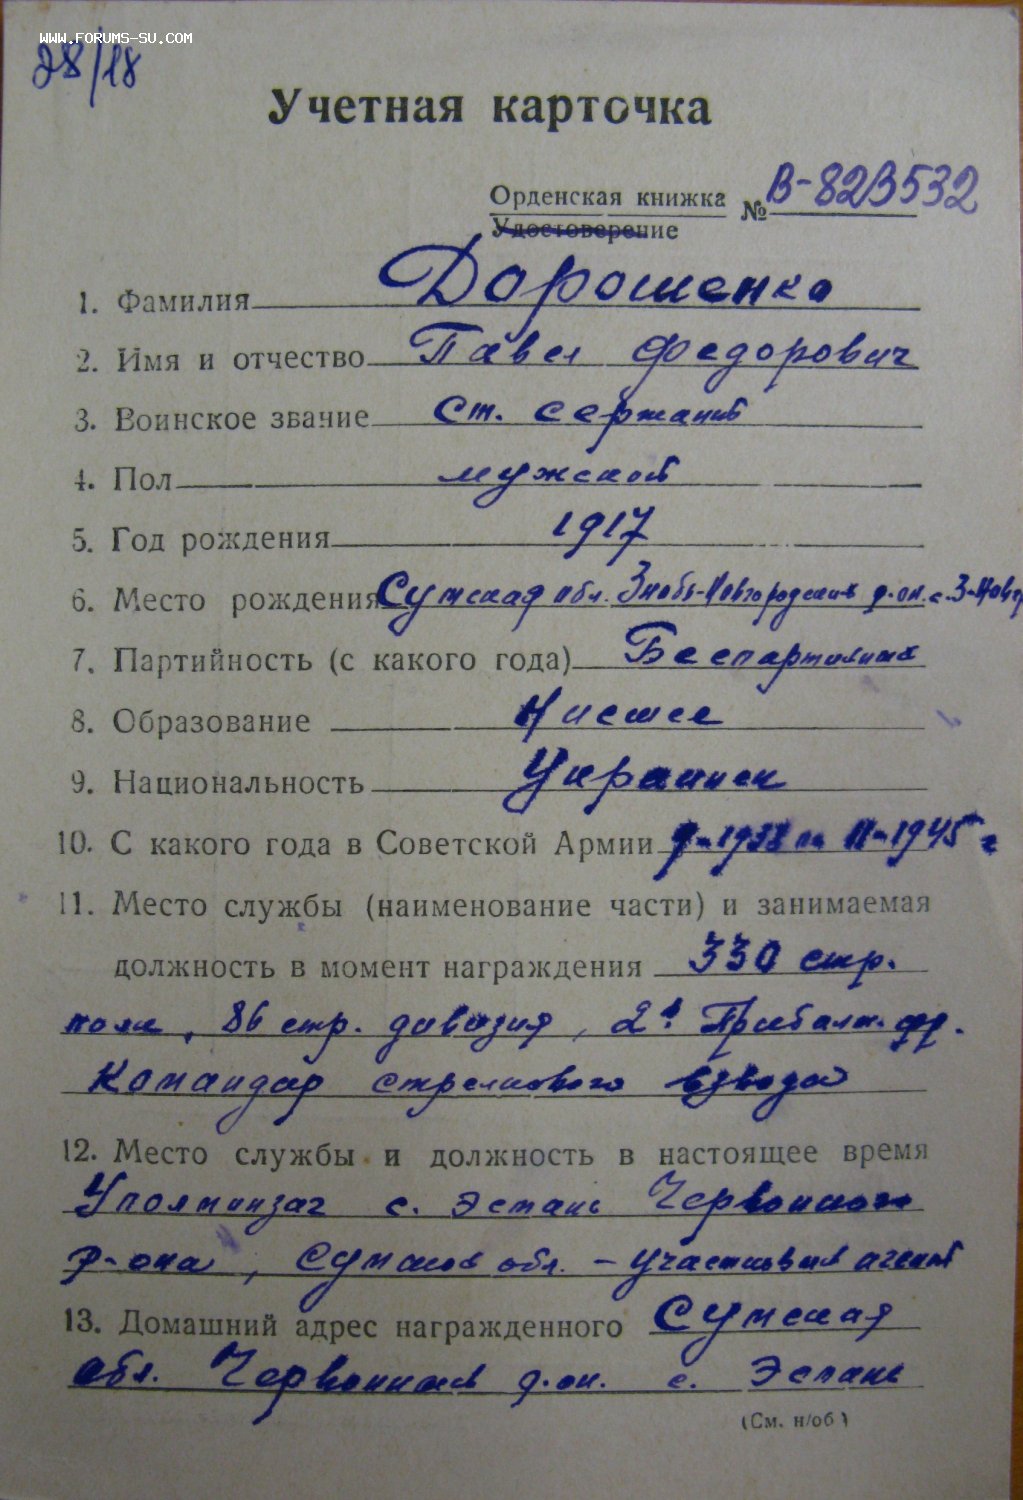 www.FORUMS-SU.COM
28/18
Учетная карточка
Орденская книжка № В-823532
Удостоверение
1. Фамилия Дорошенко
2. Имя и отчество Павел Федорович
3. Воинское звание ст. сержант
4. Пол мужской
5. Год рождения 1917
6. Место рождения Сумская обл. Знобь-Новгородский р-он. с.
7. Партийность (с какого года) Беспартийный
8. Образование Низшее
9. Национальность Украинец
10. С какого года в Советской Армии 1945 г
11. Место службы (наименование части) и занимаемая
должность в момент награждения 330 стр.
полк, 86 стр. дивизия, 2й Прибалт. фр.
Командир стрелкового взвода
12. Место службы и должность в настоящее время
с. Эсмань Червонного
р-она, Сумской обл. – участковый агент
13. Домашний адрес награжденного Сумская
обл. Червонный р-он. с. Эсмань
(См. н/об)